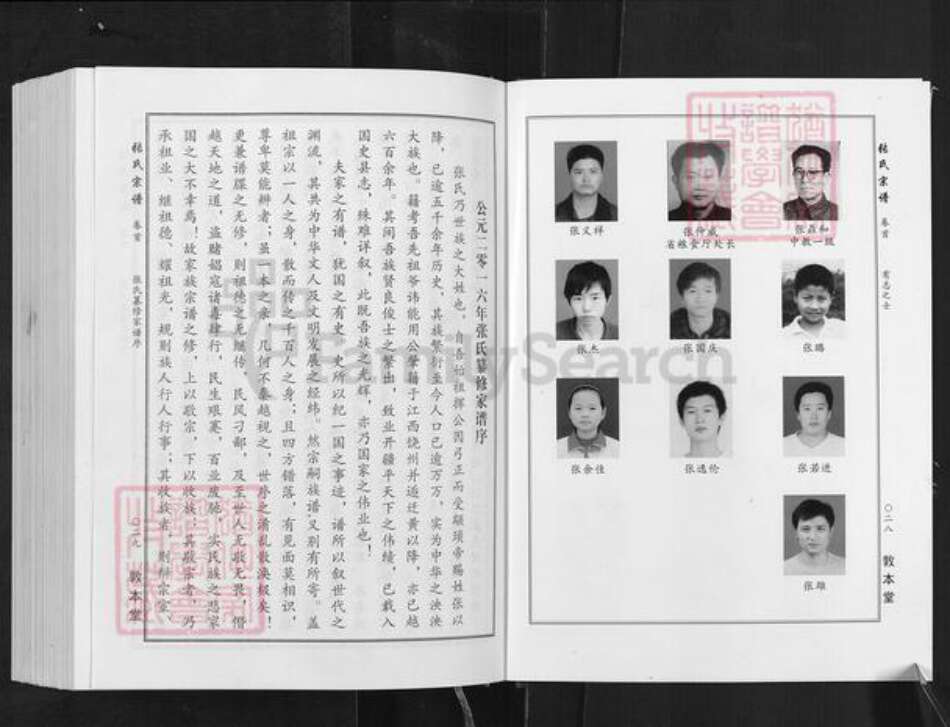 张氏宗谱
卷首
有志之士
〇二八
敦本堂
张磊和
中教一级
张仲威
省粮食厅处长
张义祥
张鹏
张国庆
张杰
张若进
张逸伦
张余佳
张雄
公元二零一六年张氏纂修家谱序
张氏乃世族之大姓也，自吾始祖挥公因弓正而受颛顼帝赐姓张以
降，已逾五千余年历史，其族繁衍至今人口已逾万万，实为中华之泱泱
大族也。籍考吾先祖爷讳能用公肇籍于江西饶州并适迁黄以降，亦已越
六百余年。其间吾族贤良俊士之繁出，致业开疆平天下之伟绩，已载入
国史县志，殊难详叙，此既吾族之光辉，亦乃国家之伟业也！
夫家之有谱，犹国之有史，史所以纪一国之事迹，谱所以叙世代之
渊流，其共为中华文人及文明发展之经纬。然宗嗣族谱又别有所寄。盖
祖宗以一人之身，散而传之千百人之身；且四方错落，有见面莫相识，
尊卑莫能辨者；虽一本之亲，几何不秦越视之，世序之淆乱散涣极矣！
更兼谱牒之无修，则祖德之无继传，民风刁鄙，及至世人无敬无畏，僭
越天地之道，盗赌娼寇诸毒肆行，民生艰蹇，百业废驰，实民族之悲家
国之大不幸焉！故家族宗谱之修，上以敬宗，下以收族；其敬宗者，乃
承祖业、继祖德、耀祖光，规则族人行人行事；其收族者，则辨宗室、
张氏宗谱
卷首
张氏纂修家谱序
〇二九
敦本堂
FamilySearch